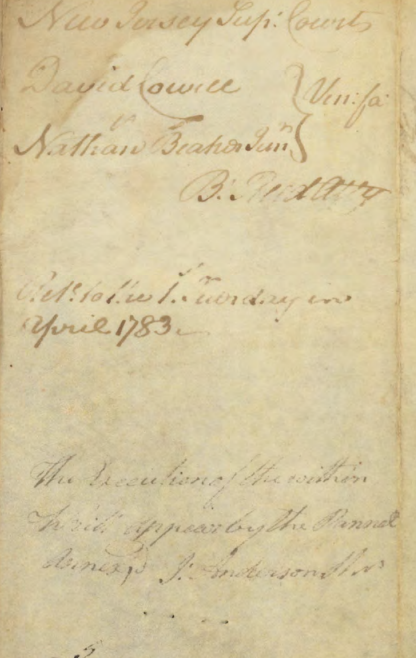 New Jersey Sup: Court
David Cowell
v
Nathan Beakes Junr
Ven: fa
B: Attr
Retble to the 1st Tuesday in
April 1783.
The Execution of the within
Writ appears by the Pannel
Annexed J. Anderson Shff